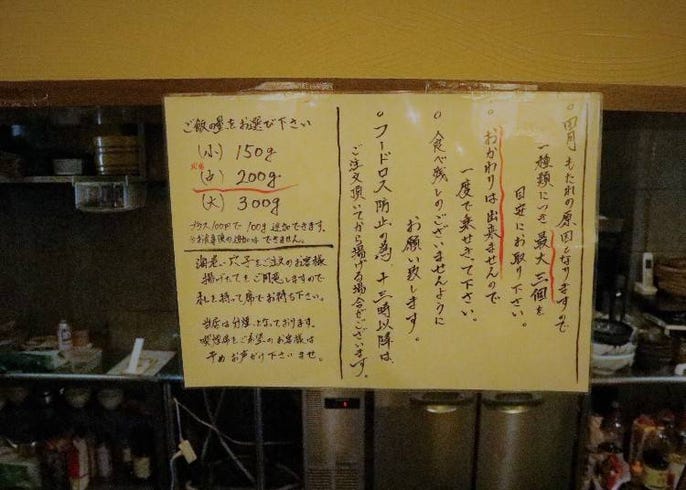 ○胃もたれの原因となりますので
一種類につき最大三個を
目安にお取り下さい。
○おかわりは出来ませんので
一度で乗せきって下さい。
○食べ残しのございませんように
お願い致します。
○フードロス防止の為、十三時以降は
ご注文頂いてから揚げる場合がございます。
ご飯の量をお選び下さい
(小) 150g
(中) 200g
(大) 300g
プラス100円で100g追加できます。
※お食事後の追加はできません。
海老、穴子をご注文のお客様
揚げたてをご用意しますので
札を持って席でお待ち下さい。
当店は分煙となっております。
喫煙席をご希望のお客様は
予めお声がけ下さいませ。